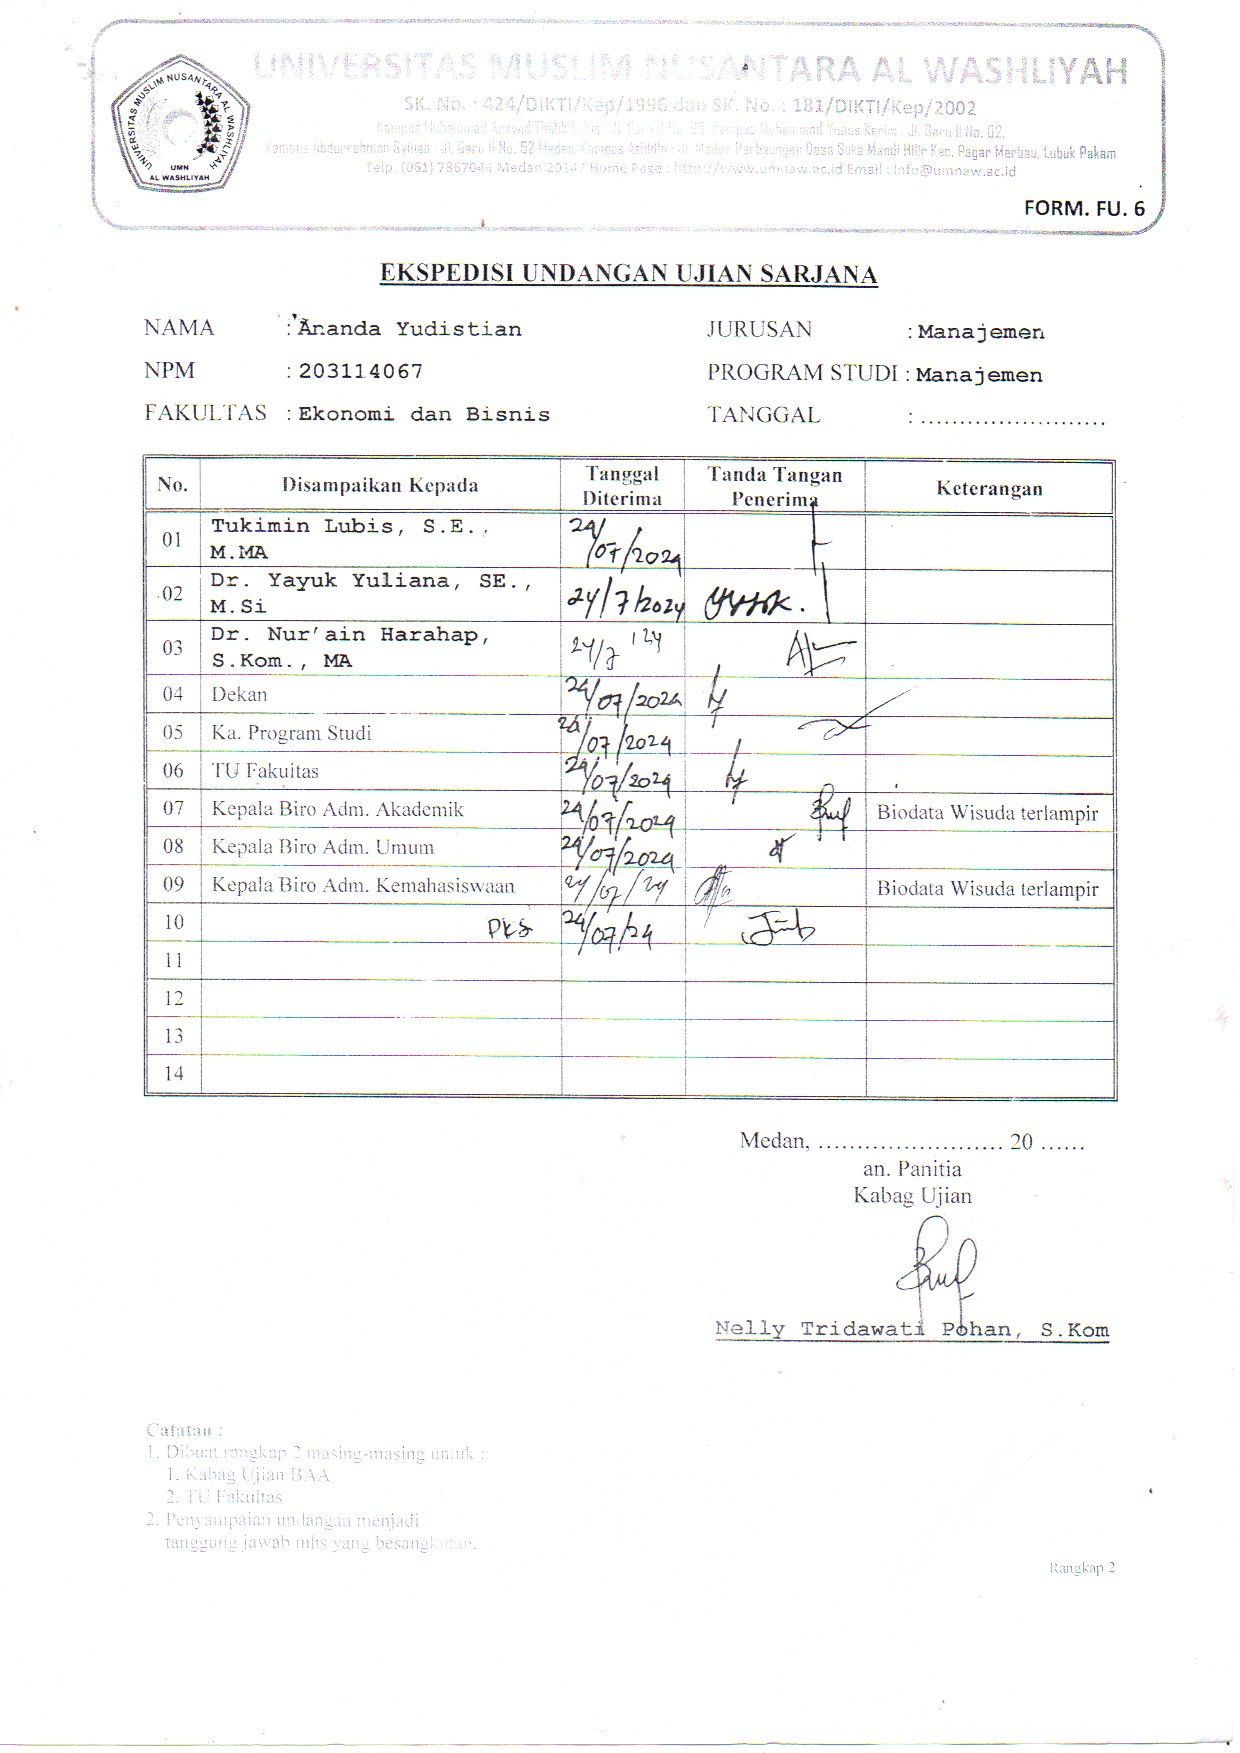 UNIVERSITAS MUSLIM NUSANTARA AL WASHLIYAH
SK. No. : 424/DIKTI/Kep/1996 dan SK. No. : 181/DIKTI/Kep/2002
Kampus Muhammad Arsyad Thalib Lubis : Jl. Garu II No. 93, Kampus Muhammad Yunus Karim : Jl. Garu II No. 02,
Kampus Abdurrahman Syihab : Jl. Garu II No. 52 Medan, Kampus Aziddin : Jl. Medan Perbaungan Desa Suka Mandi Hilir Kec. Pagar Merbau, Lubuk Pakam
Telp. (061) 7867044 Medan 20147 Home Page : http://www.umnaw.ac.id Email : info@umnaw.ac.id
UNIVERSITAS MUSLIM NUSANTARA AL WASHLIYAH
UMN
AL WASHLIYAH
FORM. FU. 6
EKSPEDISI UNDANGAN UJIAN SARJANA
NAMA : Ananda Yudistian JURUSAN : Manajemen
NPM : 203114067 PROGRAM STUDI : Manajemen
FAKULTAS : Ekonomi dan Bisnis TANGGAL : ........................
No. Disampaikan Kepada Tanggal Diterima Tanda Tangan Penerima Keterangan
01 Tukimin Lubis, S.E., M.MA 24/07/2024
02 Dr. Yayuk Yuliana, SE., M.Si 24/7/2024
03 Dr. Nur'ain Harahap, S.Kom., MA 24/7 '24
04 Dekan 24/07/2024
05 Ka. Program Studi 24/07/2024
06 TU Fakultas 24/07/2024
07 Kepala Biro Adm. Akademik 24/07/2024 Biodata Wisuda terlampir
08 Kepala Biro Adm. Umum 24/07/2024
09 Kepala Biro Adm. Kemahasiswaan 24/07/24 Biodata Wisuda terlampir
10 PKS 24/07/24
11
12
13
14
Medan, ........................ 20 ......
an. Panitia
Kabag Ujian
Nelly Tridawati Pohan, S.Kom
Catatan :
1. Dibuat rangkap 2 masing-masing untuk :
1. Kabag Ujian BAA
2. TU Fakultas
2. Penyampaian undangan menjadi
tanggung jawab mhs yang besangkutan.
Rangkap 2